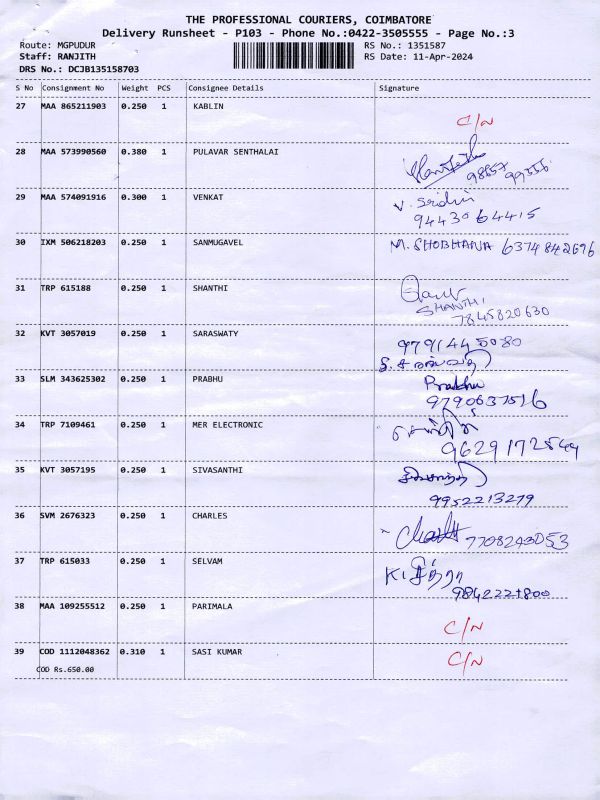 THE PROFESSIONAL COURIERS, COIMBATORE
Delivery Runsheet - P103 - Phone No.:0422-3505555 - Page No.:3
Route: MGPUDUR RS No.: 1351587
Staff: RANJITH RS Date: 11-Apr-2024
DRS No.: DCJB135158703
S No Consignment No Weight PCS Consignee Details Signature
27 MAA 865211903 0.250 1 KABLIN
C/N
28 MAA 573990560 0.380 1 PULAVAR SENTHALAI
98657 99556
29 MAA 574091916 0.300 1 VENKAT
V. Sridhi
9443064415
30 IXM 506218203 0.250 1 SANMUGAVEL M. SHOBHANA 6374842696
31 TRP 615188 0.250 1 SHANTHI
SHANTHI
7845820630
32 KVT 3057019 0.250 1 SARASWATY
9791445080
S. சரஸ்வதி
33 SLM 343625302 0.250 1 PRABHU Prabhu
9790637516
34 TRP 7109461 0.250 1 MER ELECTRONIC
9629172544
35 KVT 3057195 0.250 1 SIVASANTHI சிவசாந்தி
9952213279
36 SVM 2676323 0.250 1 CHARLES
7708243053
37 TRP 615033 0.250 1 SELVAM
K. சித்ரா
9842221800
38 MAA 109255512 0.250 1 PARIMALA
C/N
39 COD 1112048362 0.310 1 SASI KUMAR C/N
COD Rs.650.00